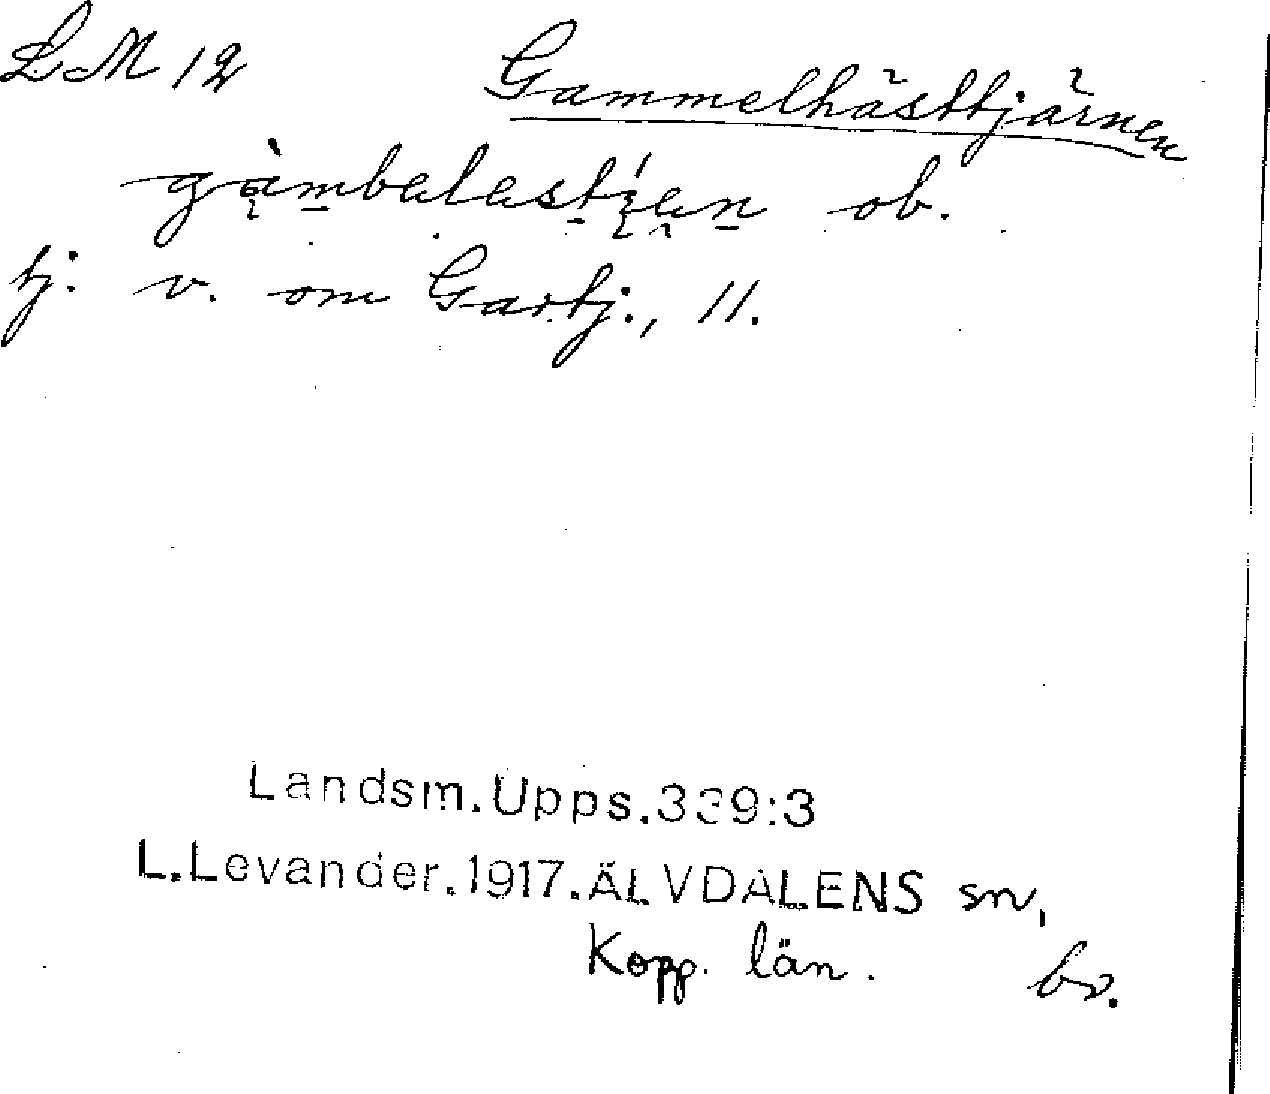 LM 12 Gammelhästtjärnen
gàmbalastíęn ob.
tj. v. om Gastj., 11.
Landsm.Upps.339:3
L.Levander.1917.ÄLVDALENS sn,
Kopp. län. bv.